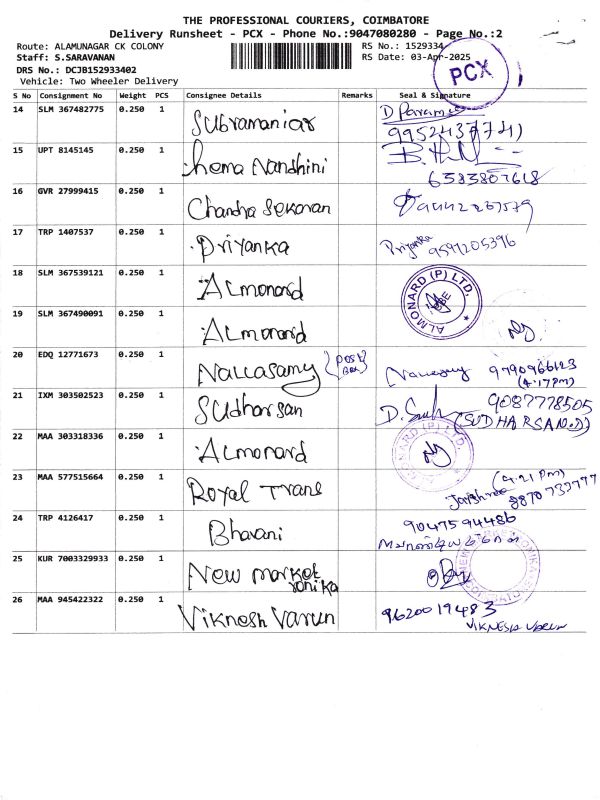 THE PROFESSIONAL COURIERS, COIMBATORE
Delivery Runsheet - PCX - Phone No.:9047080280 - Page No.:2
Route: ALAMUNAGAR CK COLONY
RS No.: 1529334
Staff: S.SARAVANAN
RS Date: 03-Apr-2025
DRS No.: DCJB152933402
Vehicle: Two Wheeler Delivery
PCX
S No Consignment No Weight PCS Consignee Details Remarks Seal & Signature
14 SLM 367482775 0.250 1 Subramaniar D Param
15 UPT 8145145 0.250 1 hema Nandhini
6383807618
16 GVR 27999415 0.250 1 Chandra Sekaran
17 TRP 1407537 0.250 1 Priyanka Priyanka 9597205396
18 SLM 367539121 0.250 1 Almonard ALMONARD (P) LTD.
19 SLM 367490091 0.250 1 Almonard
20 EDQ 12771673 0.250 1 Nallasamy (Post Box) 9790966123
(4:17pm)
21 IXM 303502523 0.250 1 Sudharsan 9087778505
(SUDHARSAN.D)
22 MAA 303318336 0.250 1 Almonard ALMONARD (P) LTD.
23 MAA 577515664 0.250 1 Royal Trans (4.21 pm)
8870737777
24 TRP 4126417 0.250 1 Bhavani 9047594486
25 KUR 7003329933 0.250 1 New market
ronika
26 MAA 945422322 0.250 1 Viknesh Varun 9620019483
VIKNESH VARUN